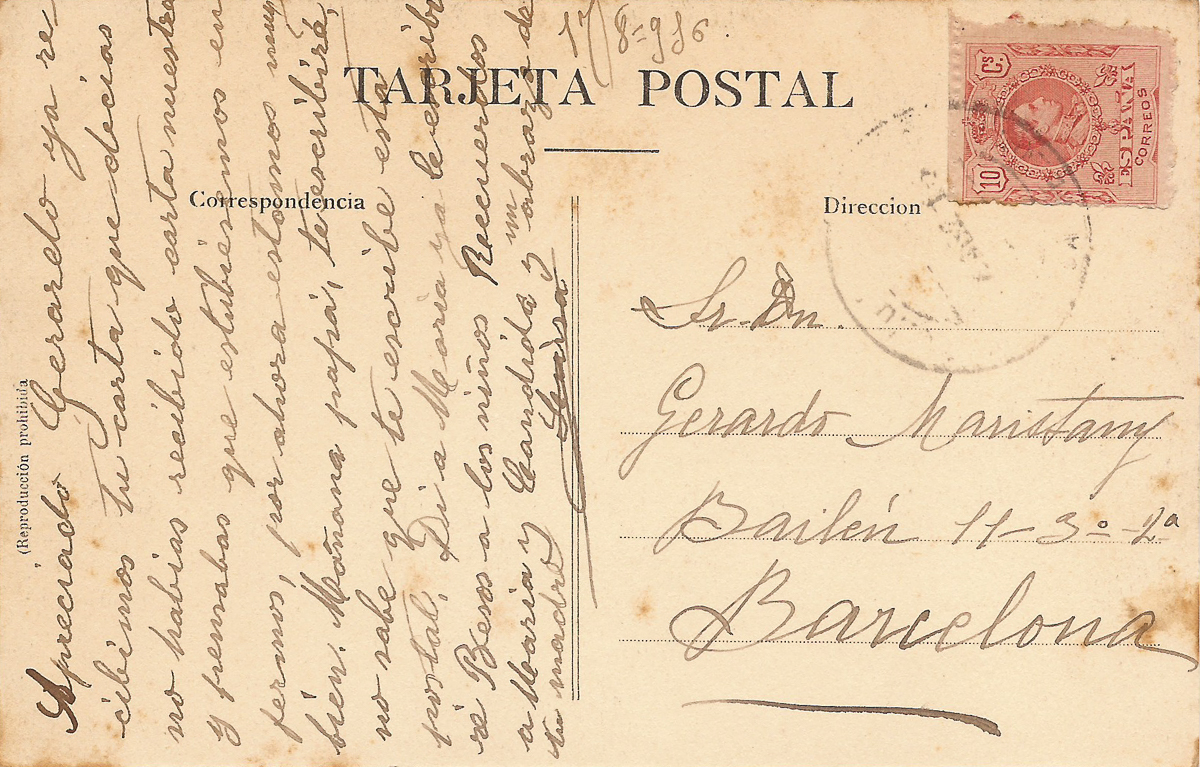 17/8-916.
TARJETA POSTAL
Correspondencia
Direccion
(Reproducción prohibida
Apreciado Gerardo ya re
cibimos tu carta que decias
no habias recibido carta nuestra
y pensabas que estubiésemos en
fermos, por ahora estamos muy
bien. Mañana papá, te escribiré,
no sabe que te escribe esta
postal, Di a Maria ya le escribi
ré Besos a los niños Recuerdos
a Maria y Candida y un abrazo de
tu madre
Sr. Dn.
Gerardo Maristany
Bailén 11-3º-2ª
Barcelona
10 Cs
ESPAÑA
CORREOS